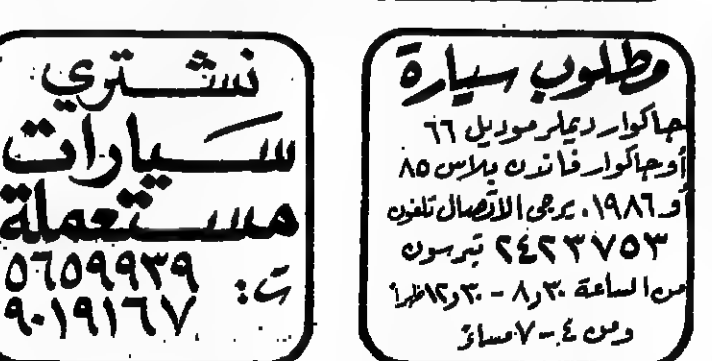 مطلوب سيارة
جاكوار ديملر موديل ٦٦
أو جاكوار فاندن بلاس ٨٥
أو ١٩٨٦، يرجى الاتصال تلفون
٢٤٢٣٧٥٣ تيرسون
من الساعة ٨٫٣٠ - ١٢٫٣٠ ظهراً
ومن ٤ - ٧ مساءً
نشتري
سيارات
مستعملة
ت: ٥٦٥٩٩٣٩
٩٠١٩١٦٧